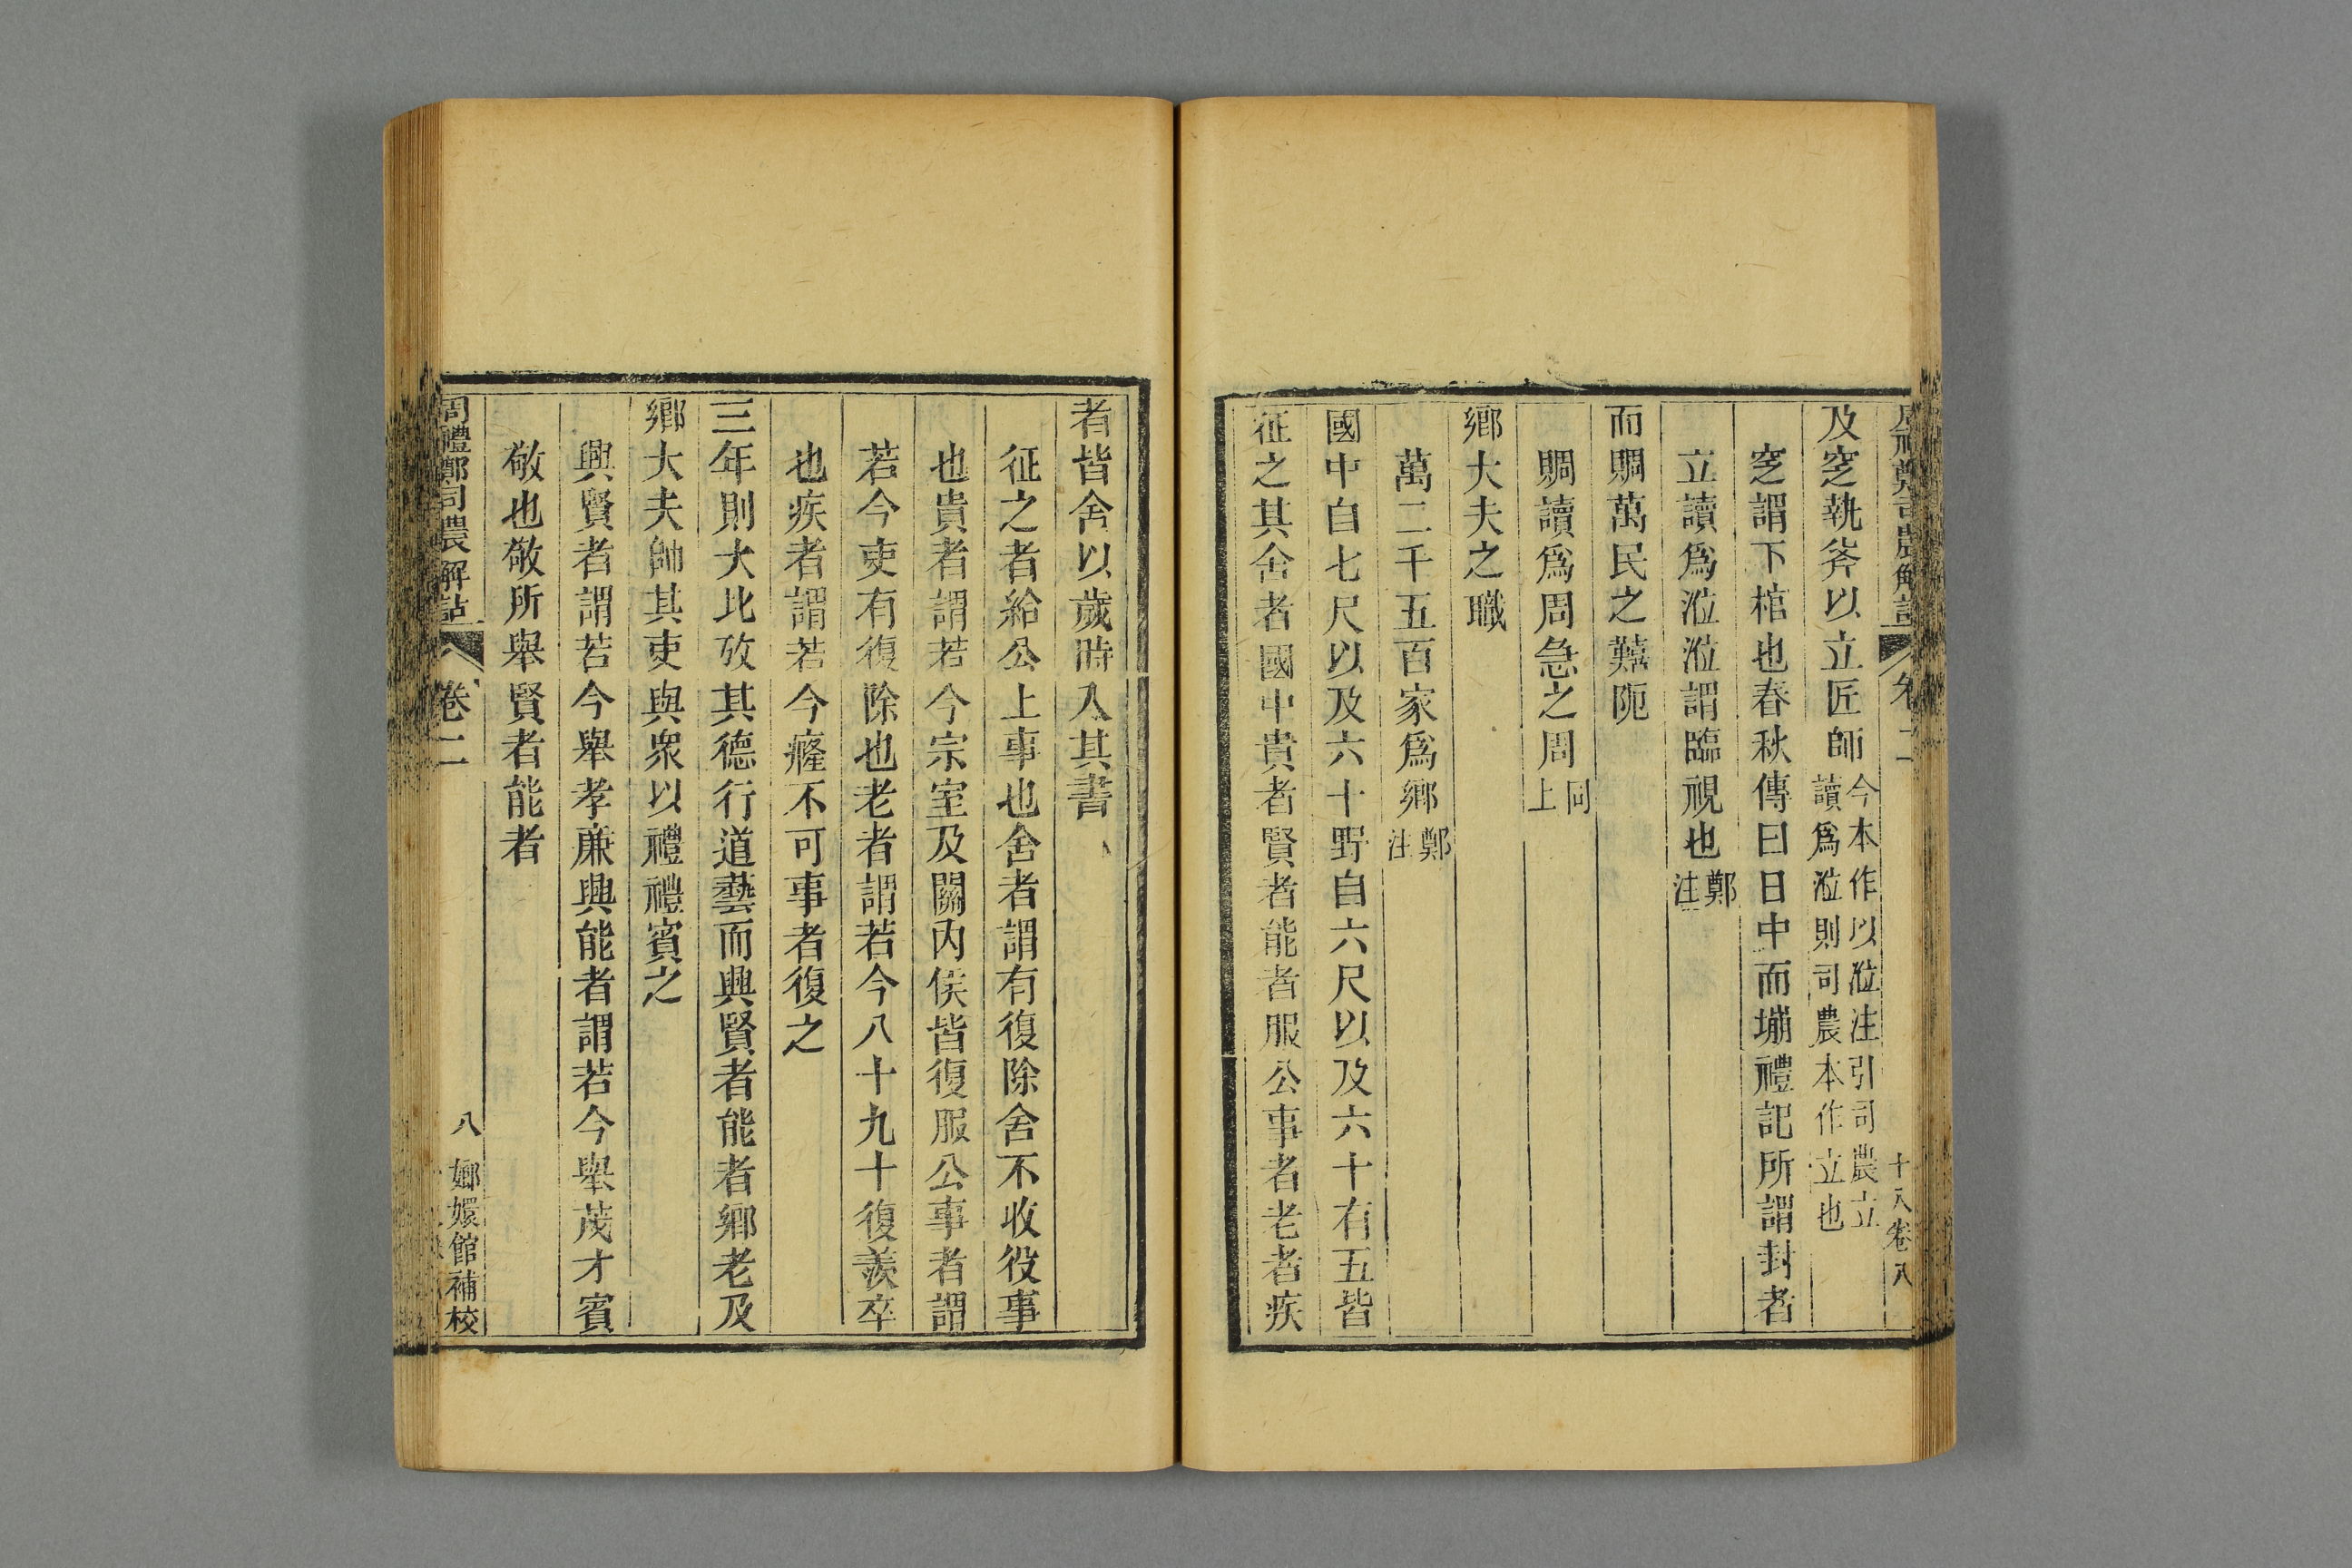 周禮鄭司農解詁 卷二 十八卷 八
及窆執斧以立匠師今本作以涖注引司農立讀爲涖則司農本作立也
窆謂下棺也春秋傳曰日中而塴禮記所謂封者
立讀爲涖涖謂臨視也鄭注
而賙萬民之囏阨
賙讀爲周急之周同上
鄉大夫之職
萬二千五百家爲鄉鄭注
國中自七尺以及六十野自六尺以及六十有五皆
征之其舍者國中貴者賢者能者服公事者老者疾
者皆舍以歲時入其書
征之者給公上事也舍者謂有復除舍不收役事
也貴者謂若今宗室及關內侯皆復服公事者謂
若今吏有復除也老者謂若今八十九十復羨卒
也疾者謂若今癃不可事者復之
三年則大比攷其德行道藝而興賢者能者鄉老及
鄉大夫帥其吏與衆以禮禮賓之
興賢者謂若今舉孝廉興能者謂若今舉茂才賓
敬也敬所舉賢者能者
周禮鄭司農解詁 卷二 八 嫏嬛館補校